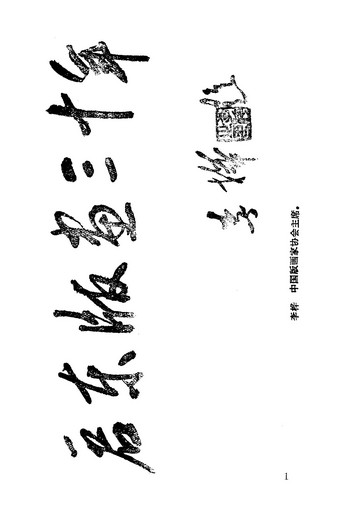 启东版画三十年
李桦
李桦 中国版画家协会主席。
1